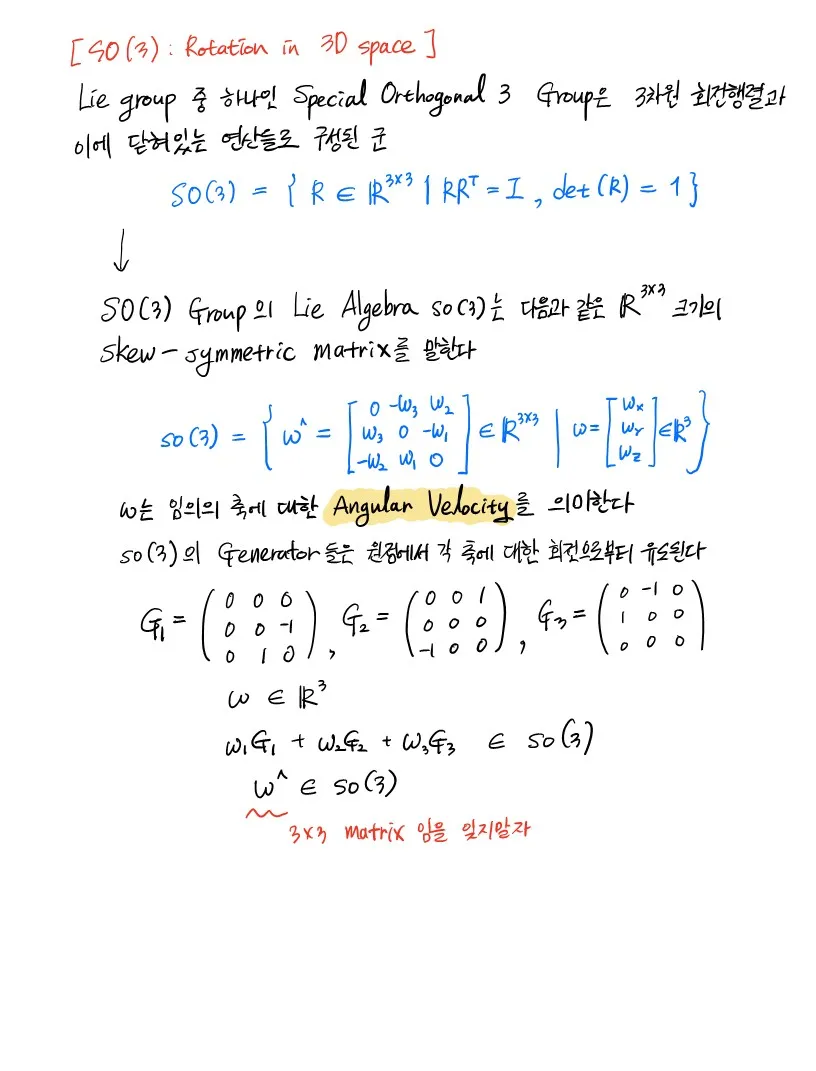 [ SO(3) : Rotation in 3D space ]
Lie group 중 하나인 Special Orthogonal 3 Group은 3차원 회전행렬과
이에 닫혀있는 연산들로 구성된 군
SO(3) = { R ∈ ℝ³ˣ³ | RRᵀ = I , det(R) = 1 }
↓
SO(3) Group의 Lie Algebra so(3)는 다음과 같은 ℝ³ˣ³ 크기의
skew-symmetric matrix를 말한다
so(3) = { ω^ = [ 0 -ω₃ ω₂ ; ω₃ 0 -ω₁ ; -ω₂ ω₁ 0 ] ∈ ℝ³ˣ³ | ω = [ ωx ; ωY ; ωz ] ∈ ℝ³ }
ω는 임의의 축에 대한 Angular Velocity를 의미한다
so(3)의 Generator들은 원점에서 각 축에 대한 회전으로부터 유도된다
G₁ = ( 0 0 0 ; 0 0 -1 ; 0 1 0 ) , G₂ = ( 0 0 1 ; 0 0 0 ; -1 0 0 ) , G₃ = ( 0 -1 0 ; 1 0 0 ; 0 0 0 )
ω ∈ ℝ³
ω₁G₁ + ω₂G₂ + ω₃G₃ ∈ so(3)
ω^ ∈ so(3)
3x3 matrix 임을 잊지말자